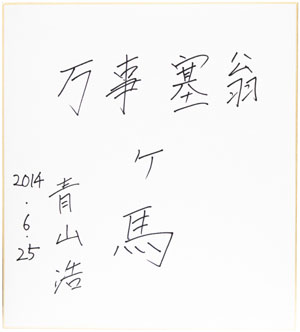 万事塞翁
ヶ
馬
2014.6.25
青山浩